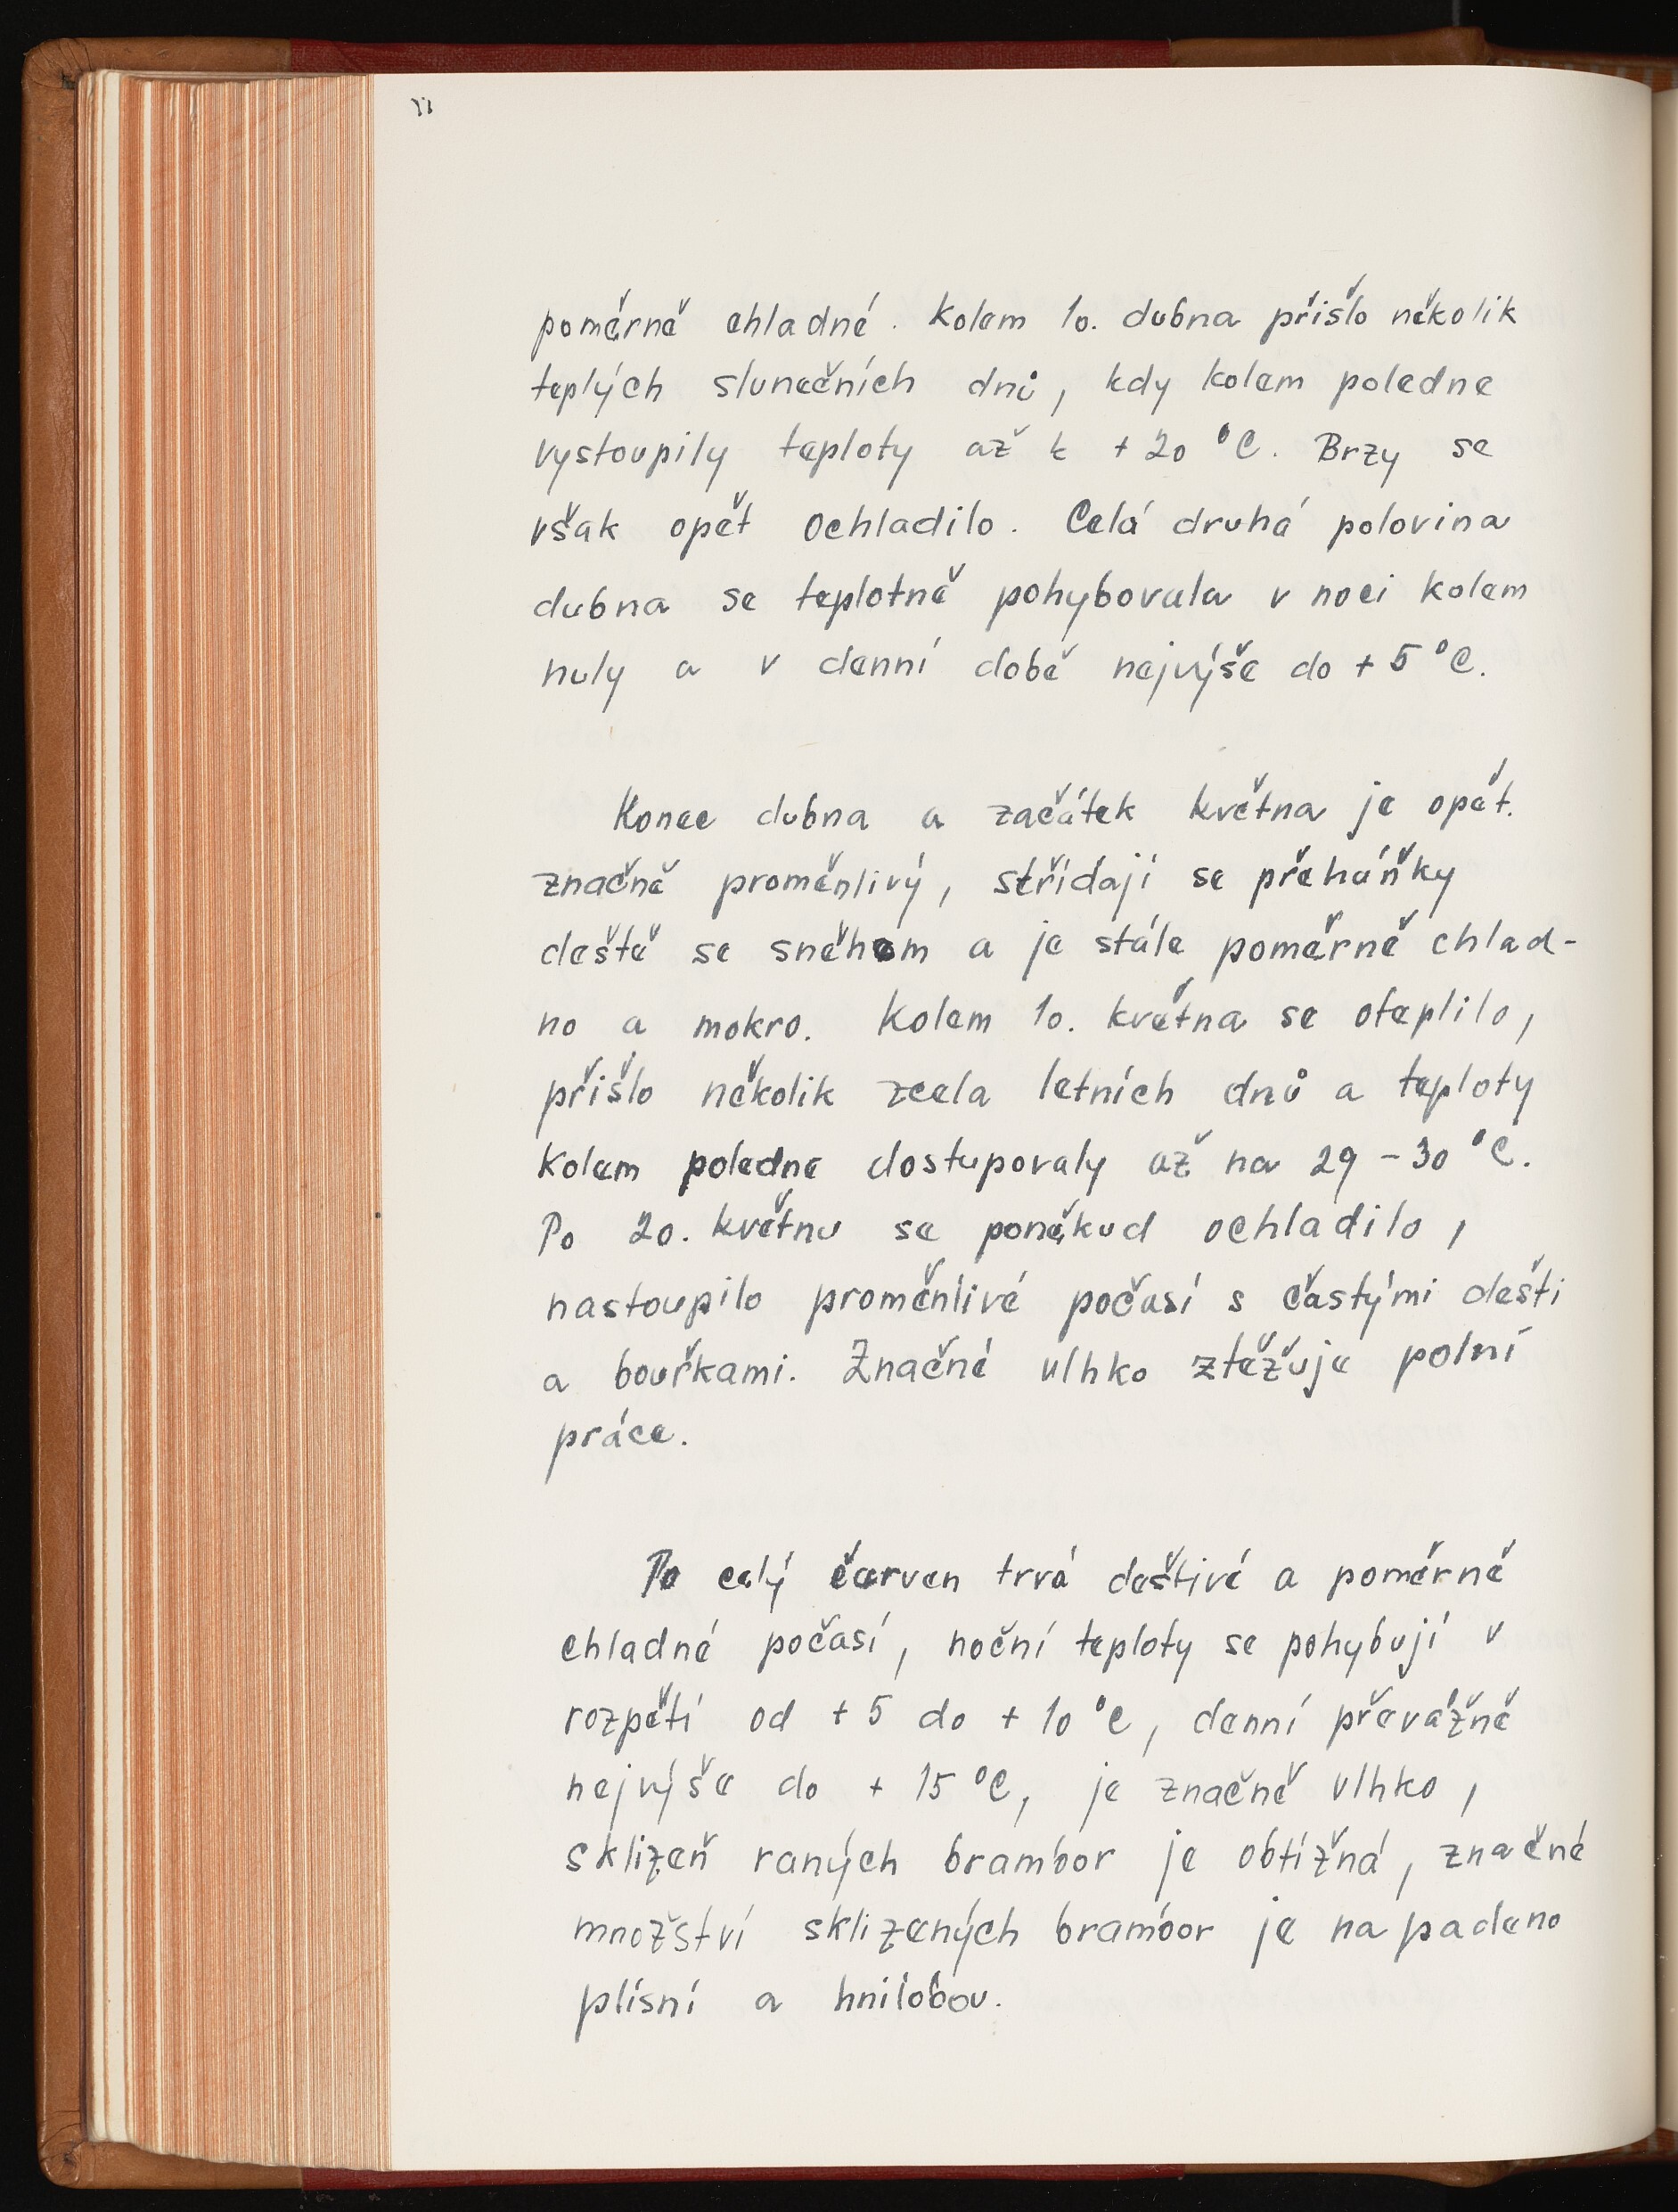 poměrně chladné. Kolem 10. dubna přišlo několik
teplých slunečních dnů, kdy kolem poledne
vystoupily teploty až k + 20 °C. Brzy se
však opět ochladilo. Celá druhá polovina
dubna se teplotně pohybovala v noci kolem
nuly a v denní době nejvýše do + 5 °C.
Konec dubna a začátek května je opět.
značně proměnlivý, střídají se přeháňky
deště se sněhem a je stále poměrně chlad-
no a mokro. Kolem 10. května se oteplilo,
přišlo několik zcela letních dnů a teploty
kolem poledne dostupovaly až na 29 - 30 °C.
Po 20. květnu se poněkud ochladilo,
nastoupilo proměnlivé počasí s častými dešti
a bouřkami. Značné vlhko ztěžuje polní
práce.
Po celý červen trvá deštivé a poměrně
chladné počasí, noční teploty se pohybují v
rozpětí od + 5 do + 10 °C, denní převážně
nejvýše do + 15 °C, je značně vlhko,
sklizeň raných brambor je obtížná, značné
množství sklizených brambor je napadeno
plísní a hnilobou.